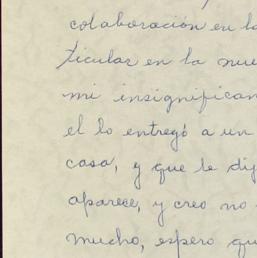 colaboración en la
ticular en la nue
mi insignifican
el lo entregó a un
casa, y que le dij
aparece, y creo no
mucho, espero qu